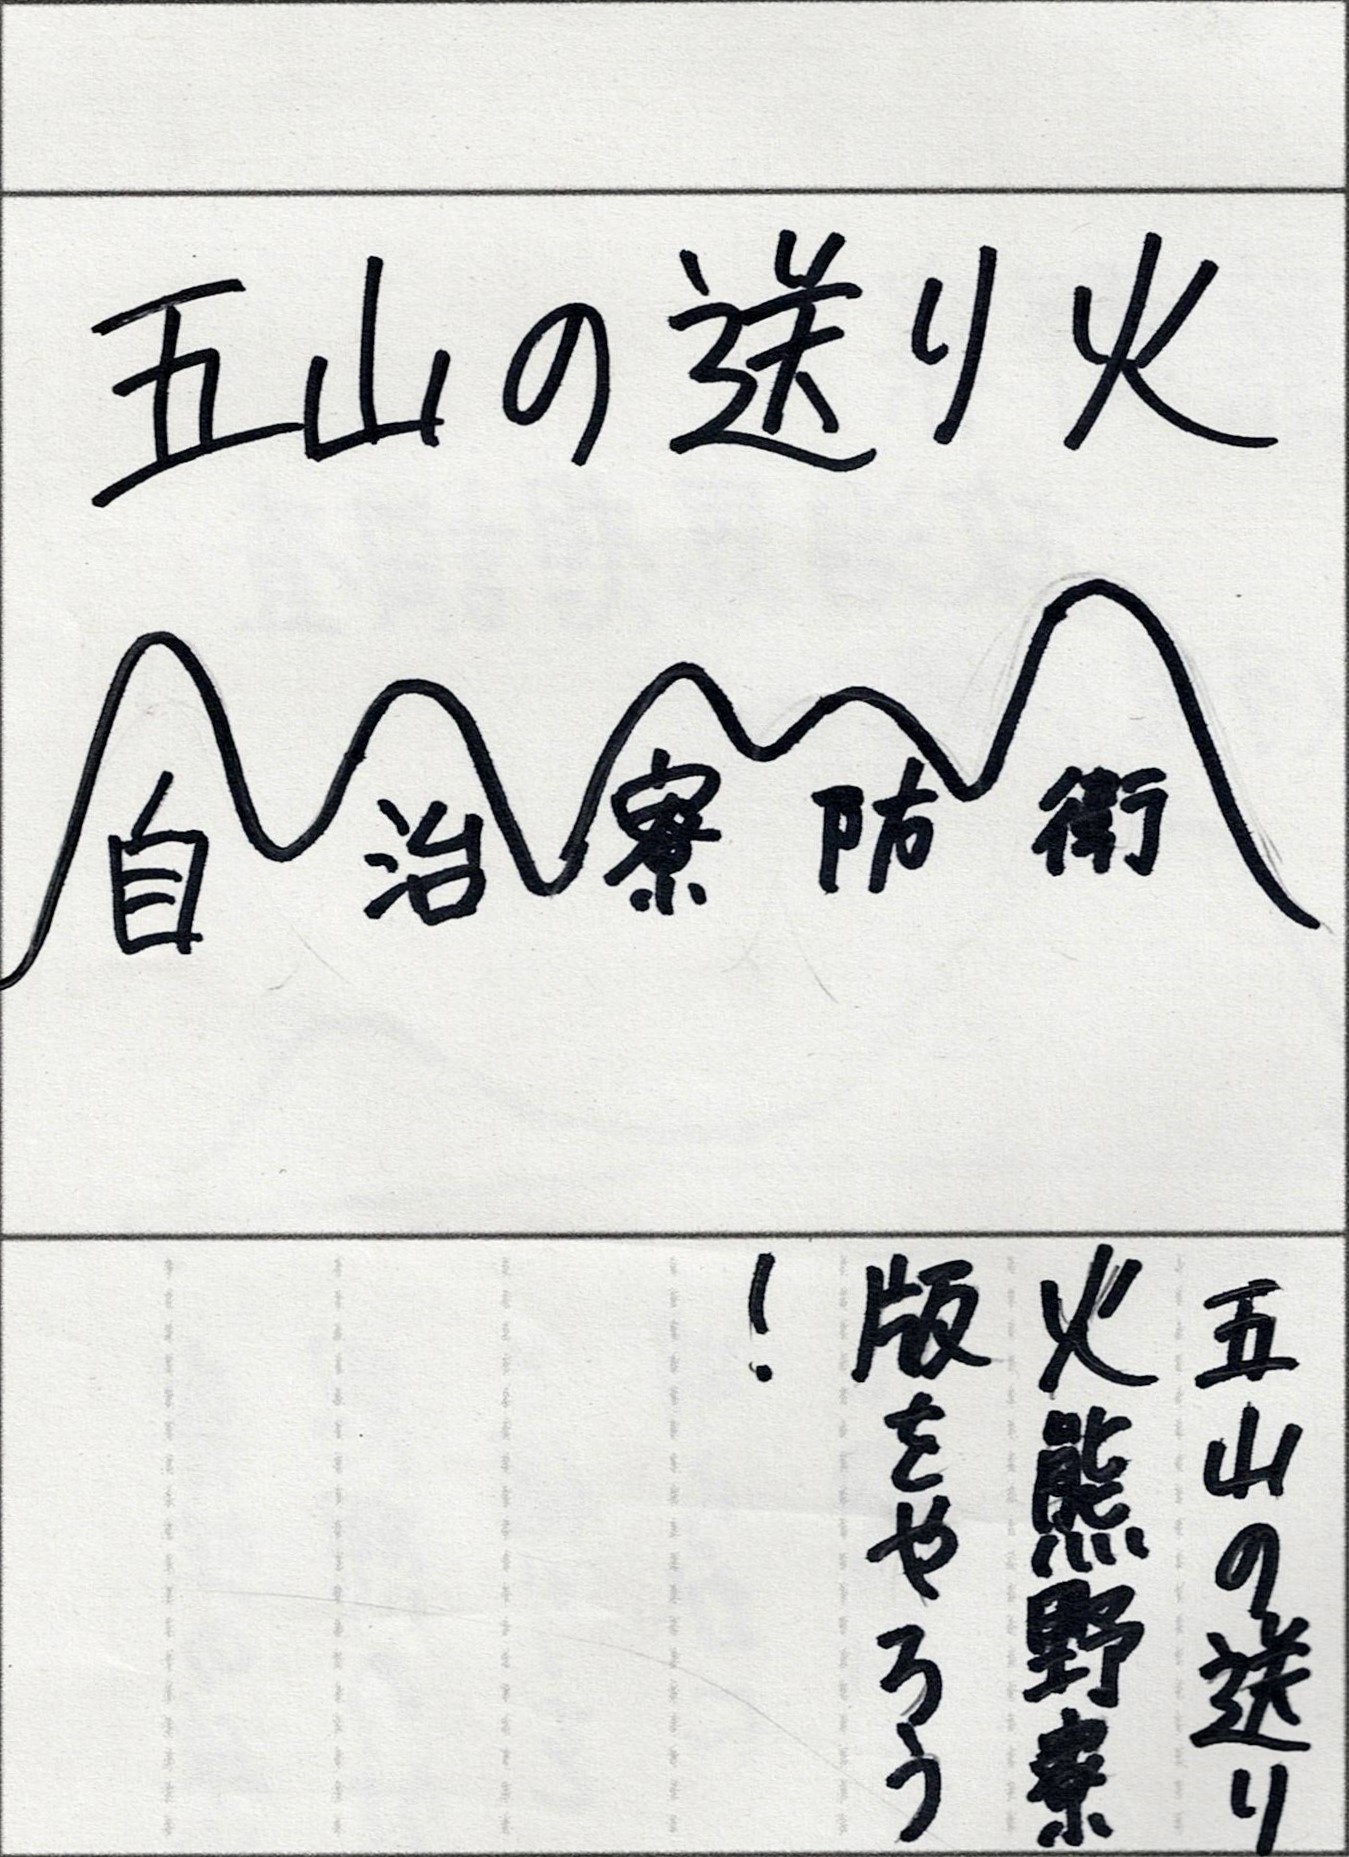 五山の送り火
自治寮防衛
五山の送り
火熊野寮
版をやろう
!